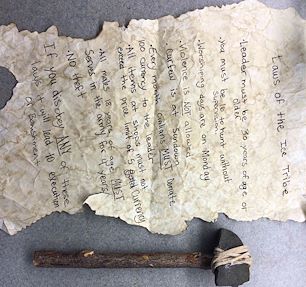 Laws of the Ice Tribe
·Leader must be 30 years of age or
older
·You must be 16 to hunt without
supervision
·Worshiping days are on Monday
·Violence is NOT allowed
·Curfew is at Sundown
·Every month civilians MUST donate
100 currency to the leader
·All items at shops must not
exceed the price limit of 5 currency
·All males 18 years of age MUST
Serve in the army for 4 years
·NO theft
If you disobey ANY of these
laws it will lead to execution
or banishment